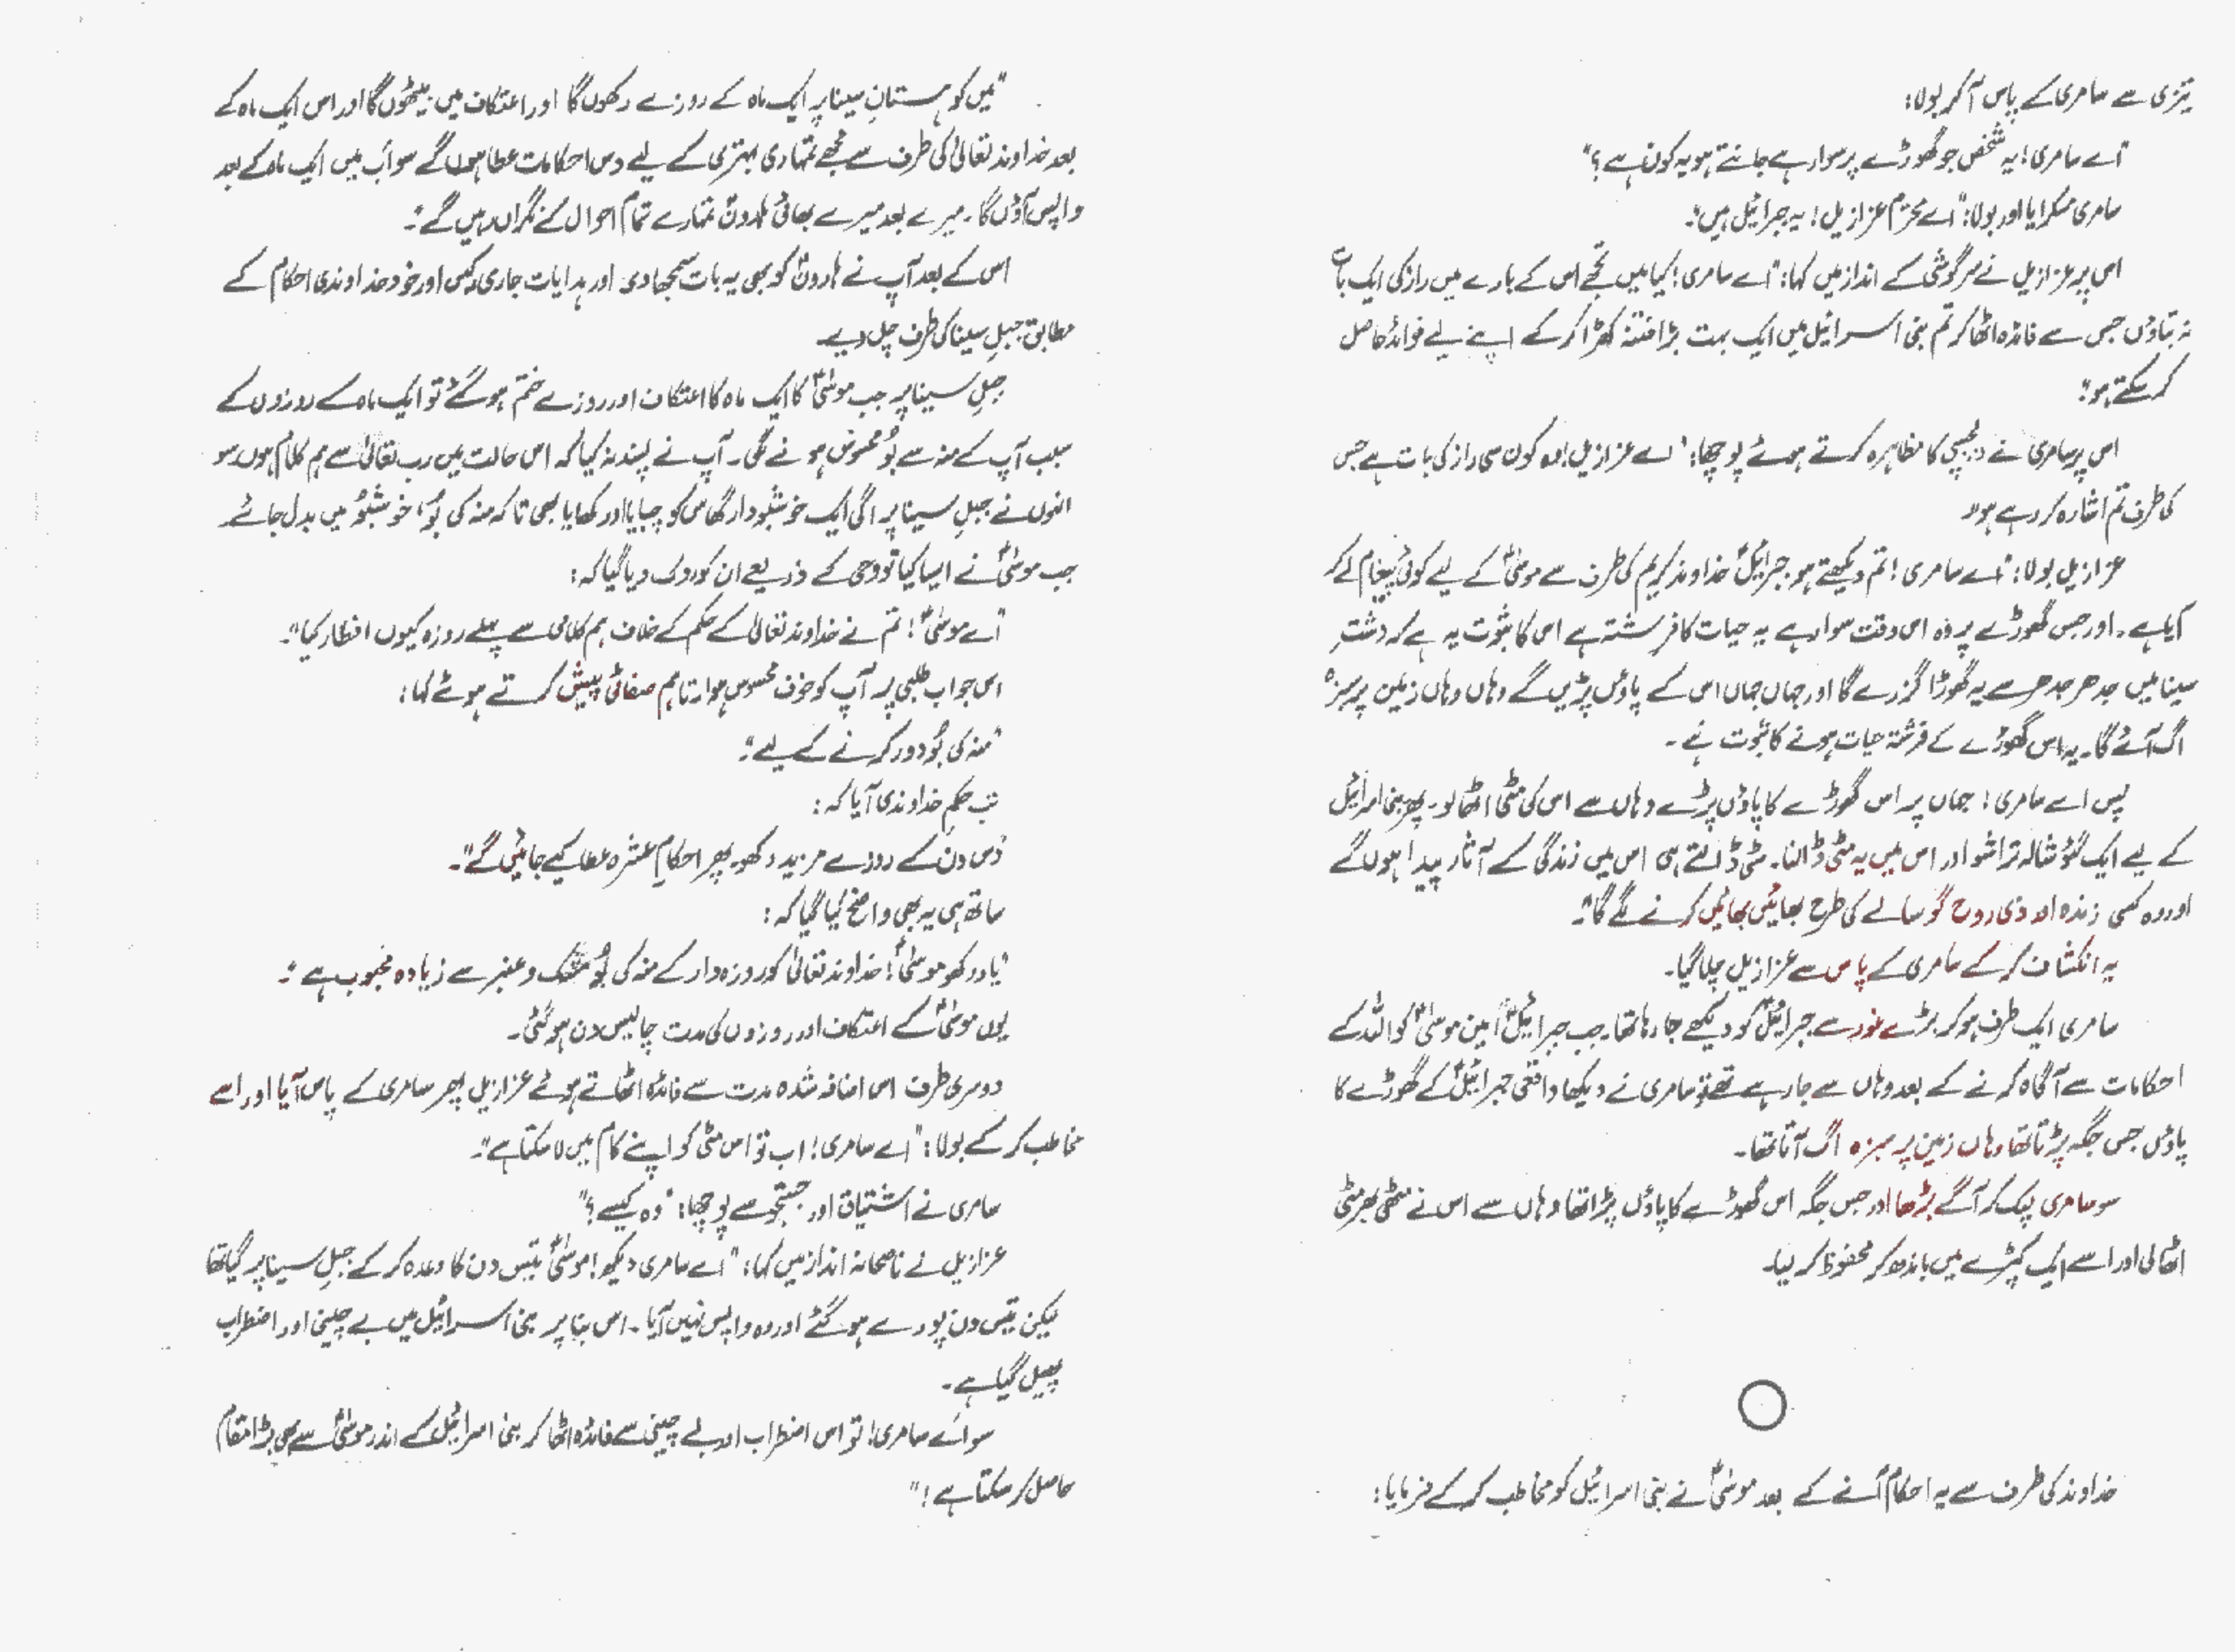 تیزی سے سامری کے پاس آ کر بولا:
"اے سامری! یہ شخص جو گھوڑے پر سوار ہے جانتے ہو یہ کون ہے؟"
سامری مسکرایا اور بولا: "اے محترم عزازیل! یہ جبرائیل ہیں"۔
اس پر عزازیل نے سرگوشی کے انداز میں کہا: "اے سامری! کیا میں تجھے اس کے بارے میں راز کی ایک بات
نہ بتاؤں جس سے فائدہ اٹھا کر تم بنی اسرائیل میں ایک بہت بڑا فتنہ کھڑا کر کے اپنے لیے فوائد حاصل
کر سکتے ہو"؟
اس پر سامری نے دلچسپی کا مظاہرہ کرتے ہوئے پوچھا: "اے عزازیل! وہ کون سی راز کی بات ہے جس
کی طرف تم اشارہ کر رہے ہو"؟
عزازیل بولا: "اے سامری! تم دیکھتے ہو جبرائیلؑ خداوند کریم کی طرف سے موسٰیؑ کے لیے کوئی پیغام لے کر
آیا ہے۔ اور جس گھوڑے پر وہ اس وقت سوار ہے یہ حیات کا فرشتہ ہے اس کا ثبوت یہ ہے کہ دشتِ
سینا میں جدھر جدھر سے یہ گھوڑا گزرے گا اور جہاں جہاں اس کے پاؤں پڑیں گے وہاں وہاں زمین پر سبزہ
اگ آئے گا۔ یہ اس گھوڑے کے فرشتہ حیات ہونے کا ثبوت ہے۔
پس اے سامری! جہاں پر اس گھوڑے کا پاؤں پڑے وہاں سے اس کی مٹی اٹھا لو۔ پھر بنی اسرائیل
کے لیے ایک گئو شالہ تراشو اور اس میں یہ مٹی ڈالنا۔ مٹی ڈالتے ہی اس میں زندگی کے آثار پیدا ہوں گے
اور وہ کسی زندہ اور ذی روح گوسالے کی طرح بھائیں بھائیں کرنے لگے گا"۔
یہ انکشاف کر کے سامری کے پاس سے عزازیل چلا گیا۔
سامری ایک طرف ہو کر بڑے غور سے جبرائیلؑ کو دیکھے جا رہا تھا۔ جب جبرائیلؑ امین موسٰیؑ کو اللہ کے
احکامات سے آگاہ کرنے کے بعد وہاں سے جا رہے تھے تو سامری نے دیکھا واقعی جبرائیلؑ کے گھوڑے کا
پاؤں جس جگہ پڑتا تھا وہاں زمین پر سبزہ اگ آتا تھا۔
سو سامری لپک کر آگے بڑھا اور جس جگہ اس گھوڑے کا پاؤں پڑا تھا وہاں سے اس نے مٹھی بھر مٹی
اٹھا لی اور اسے ایک کپڑے میں باندھ کر محفوظ کر لیا۔
خداوند کی طرف سے یہ احکام آنے کے بعد موسٰیؑ نے بنی اسرائیل کو مخاطب کر کے فرمایا:
"میں کوہستانِ سینا پر ایک ماہ کے روزے رکھوں گا اور اعتکاف میں بیٹھوں گا اور اس ایک ماہ کے
بعد خداوند تعالیٰ کی طرف سے مجھے تمہاری بہتری کے لیے دس احکامات عطا ہوں گے سو اب میں ایک ماہ کے بعد
واپس آؤں گا۔ میرے بعد میرے بھائی ہارونؑ تمہارے تمام احوال کے نگران رہیں گے"۔
اس کے بعد آپ نے ہارونؑ کو بھی یہ بات سمجھا دی اور ہدایات جاری کیں اور خود خداوندی احکام کے
مطابق جبلِ سینا کی طرف چل دیے۔
جبلِ سینا پر جب موسٰیؑ کا ایک ماہ کا اعتکاف اور روزے ختم ہو گئے تو ایک ماہ کے روزوں کے
سبب آپ کے منہ سے بُو محسوس ہونے لگی۔ آپ نے پسند نہ کیا کہ اس حالت میں رب تعالیٰ سے ہم کلام ہوں سو
انہوں نے جبلِ سینا پر اگی ایک خوشبودار گھاس کو چبایا اور کھایا بھی تاکہ منہ کی بُو، خوشبُو میں بدل جائے۔
جب موسٰیؑ نے ایسا کیا تو وحی کے ذریعے ان کو روک دیا گیا کہ:
"اے موسٰیؑ! تم نے خداوند تعالیٰ کے حکم کے خلاف ہم کلامی سے پہلے روزہ کیوں افطار کیا"۔
اس جواب طلبی پر آپ کو خوف محسوس ہوا۔ تاہم صفائی پیش کرتے ہوئے کہا:
"منہ کی بُو دور کرنے کے لیے"۔
تب حکمِ خداوندی آیا کہ:
"دس دن کے روزے مزید رکھو۔ پھر احکامِ عشرہ عطا کیے جائیں گے"۔
ساتھ ہی یہ بھی واضح کیا گیا کہ:
"یاد رکھو موسٰیؑ! خداوند تعالیٰ کو روزہ دار کے منہ کی بُو مشک و عنبر سے زیادہ محبوب ہے"۔
یوں موسٰیؑ کے اعتکاف اور روزوں کی مدت چالیس دن ہو گئی۔
دوسری طرف اس اضافہ شدہ مدت سے فائدہ اٹھاتے ہوئے عزازیل پھر سامری کے پاس آیا اور اسے
مخاطب کر کے بولا: "اے سامری! اب تو اس مٹی کو اپنے کام میں لا سکتا ہے"۔
سامری نے اشتیاق اور جستجو سے پوچھا: "وہ کیسے؟"
عزازیل نے ناصحانہ انداز میں کہا: "اے سامری دیکھو! موسٰیؑ تیس دن کا وعدہ کر کے جبلِ سینا پر گیا تھا
لیکن تیس دن پورے ہو گئے اور وہ واپس نہیں آیا۔ اس بنا پر بنی اسرائیل میں بے چینی اور اضطراب
پھیل گیا ہے۔
سو اے سامری! تو اس اضطراب اور بے چینی سے فائدہ اٹھا کر بنی اسرائیل کے اندر موسٰیؑ سے بھی بڑا مقام
حاصل کر سکتا ہے!"